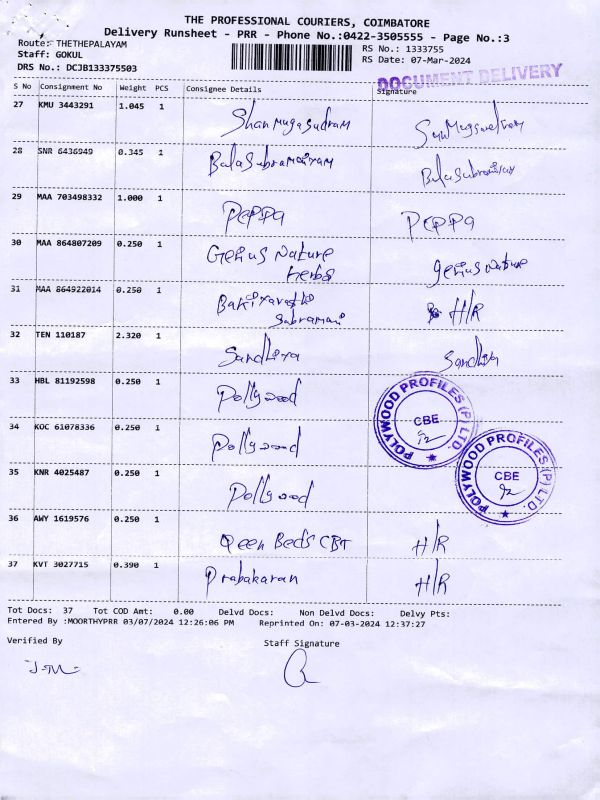 THE PROFESSIONAL COURIERS, COIMBATORE
Delivery Runsheet - PRR - Phone No.:0422-3505555 - Page No.:3
Route: THETHEPALAYAM
RS No.: 1333755
Staff: GOKUL
RS Date: 07-Mar-2024
DRS No.: DCJB133375503
DOCUMENT DELIVERY
S No Consignment No Weight PCS Consignee Details Signature
27 KMU 3443291 1.045 1 Shanmugasudram
28 SNR 6436949 0.345 1 Balasubramaniyam
29 MAA 703498332 1.000 1 PePPa PePPa
30 MAA 864807209 0.250 1 Genius Nature Herbs genius nature
31 MAA 864922014 0.250 1 Subramani H/R
32 TEN 110187 2.320 1 Sandhiya Sandhiya
33 HBL 81192598 0.250 1 Pollywood
POLYWOOD PROFILES (P) LTD
CBE
34 KOC 61078336 0.250 1 Pollywood
POLYWOOD PROFILES (P) LTD.
CBE
35 KNR 4025487 0.250 1 Pollywood
36 AWY 1619576 0.250 1 Qeen Beds CBT H/R
37 KVT 3027715 0.390 1 Prabakaran H/R
Tot Docs: 37 Tot COD Amt: 0.00 Delvd Docs: Non Delvd Docs: Delvy Pts:
Entered By :MOORTHYPRR 03/07/2024 12:26:06 PM Reprinted On: 07-03-2024 12:37:27
Verified By Staff Signature